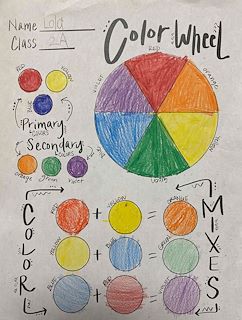 Name Lola
Class 2A
Color Wheel
RED
YELLOW
BLUE
Primary
COLORS
Secondary
COLORS
orange
green
violet
RED
orange
Yellow
violet
COLOR
MIXES
RED + YELLOW = ORANGE
YELLOW + BLUE = GREEN
BLUE + RED = VIOLET